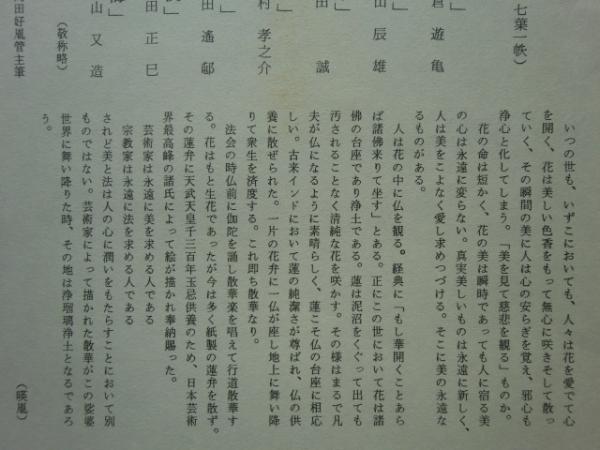 七葉一帙）
倉遊亀
山辰雄
田誠
村孝之介
田遙邨
田正巳
山又造
（敬称略）
田好胤管主筆
いつの世も、いずこにおいても、人々は花を愛でて心
を開く、花は美しい色香をもって無心に咲きそして散っ
ていく、その瞬間の美に人は心の安らぎを覚え、邪心も
浄心と化してしまう。「美を見て慈悲を観る」ものか。
花の命は短かく、花の美は瞬時であっても人に宿る美
の心は永遠に変らない。真実美しいものは永遠に新しく、
人は美をこよなく愛し求めつづける。そこに美の永遠な
るものがある。
人は花の中に仏を観る。経典に「もし華開くことあら
ば諸佛来りて坐す」とある。正にこの世において花は諸
佛の台座であり浄土である。蓮は泥沼をくぐって出ても
汚されることなく清純な花を咲かす。その様はまるで凡
夫が仏になるように素晴らしく、蓮こそ仏の台座に相応
しい。古来インドにおいて蓮の純潔さが尊ばれ、仏の供
養に散ぜられた。一片の花弁に一仏が座し地上に舞い降
りて衆生を済度する。これ即ち散華なり。
法会の時仏前に伽陀を誦し散華楽を唱えて行道散華す
る。花はもと生花であったが今は多く紙製の蓮弁を散ず。
その蓮弁に天武天皇千三百年玉忌供養のため、日本芸術
界最高峰の諸氏によって絵が描かれ奉納賜った。
芸術家は永遠に美を求める人である
宗教家は永遠に法を求める人である
されど美と法は人の心に潤いをもたらすことにおいて別
ものではない。芸術家によって描かれた散華がこの娑婆
世界に舞い降りた時、その地は浄瑠璃浄土となるであろ
う。
（暎胤）